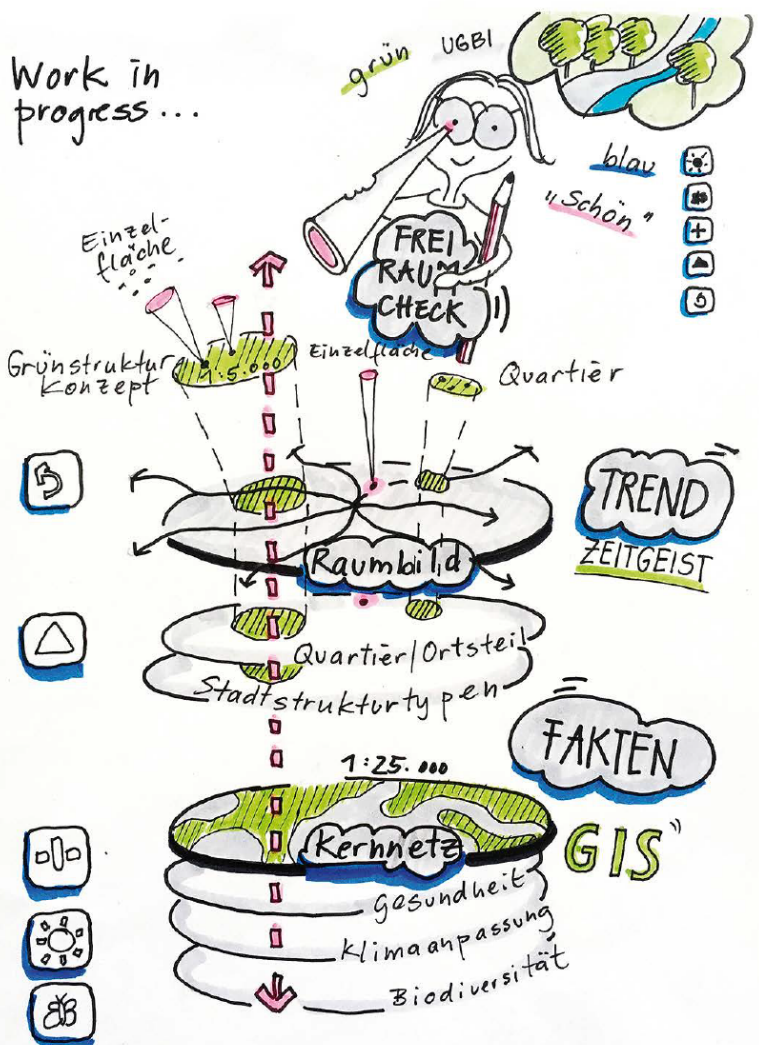 Work in
progress...
grün
UGBI
blau
"Schön"
FREI
RAUM
CHECK
Einzel-
fläche
Grünstruktur
Konzept
1:5.000
Einzelfläche
Quartier
TREND
ZEITGEIST
Raumbild
Quartier/Ortsteil
Stadtstrukturtypen
FAKTEN
1:25.000
Kernnetz
GIS
Gesundheit
Klimaanpassung
Biodiversität